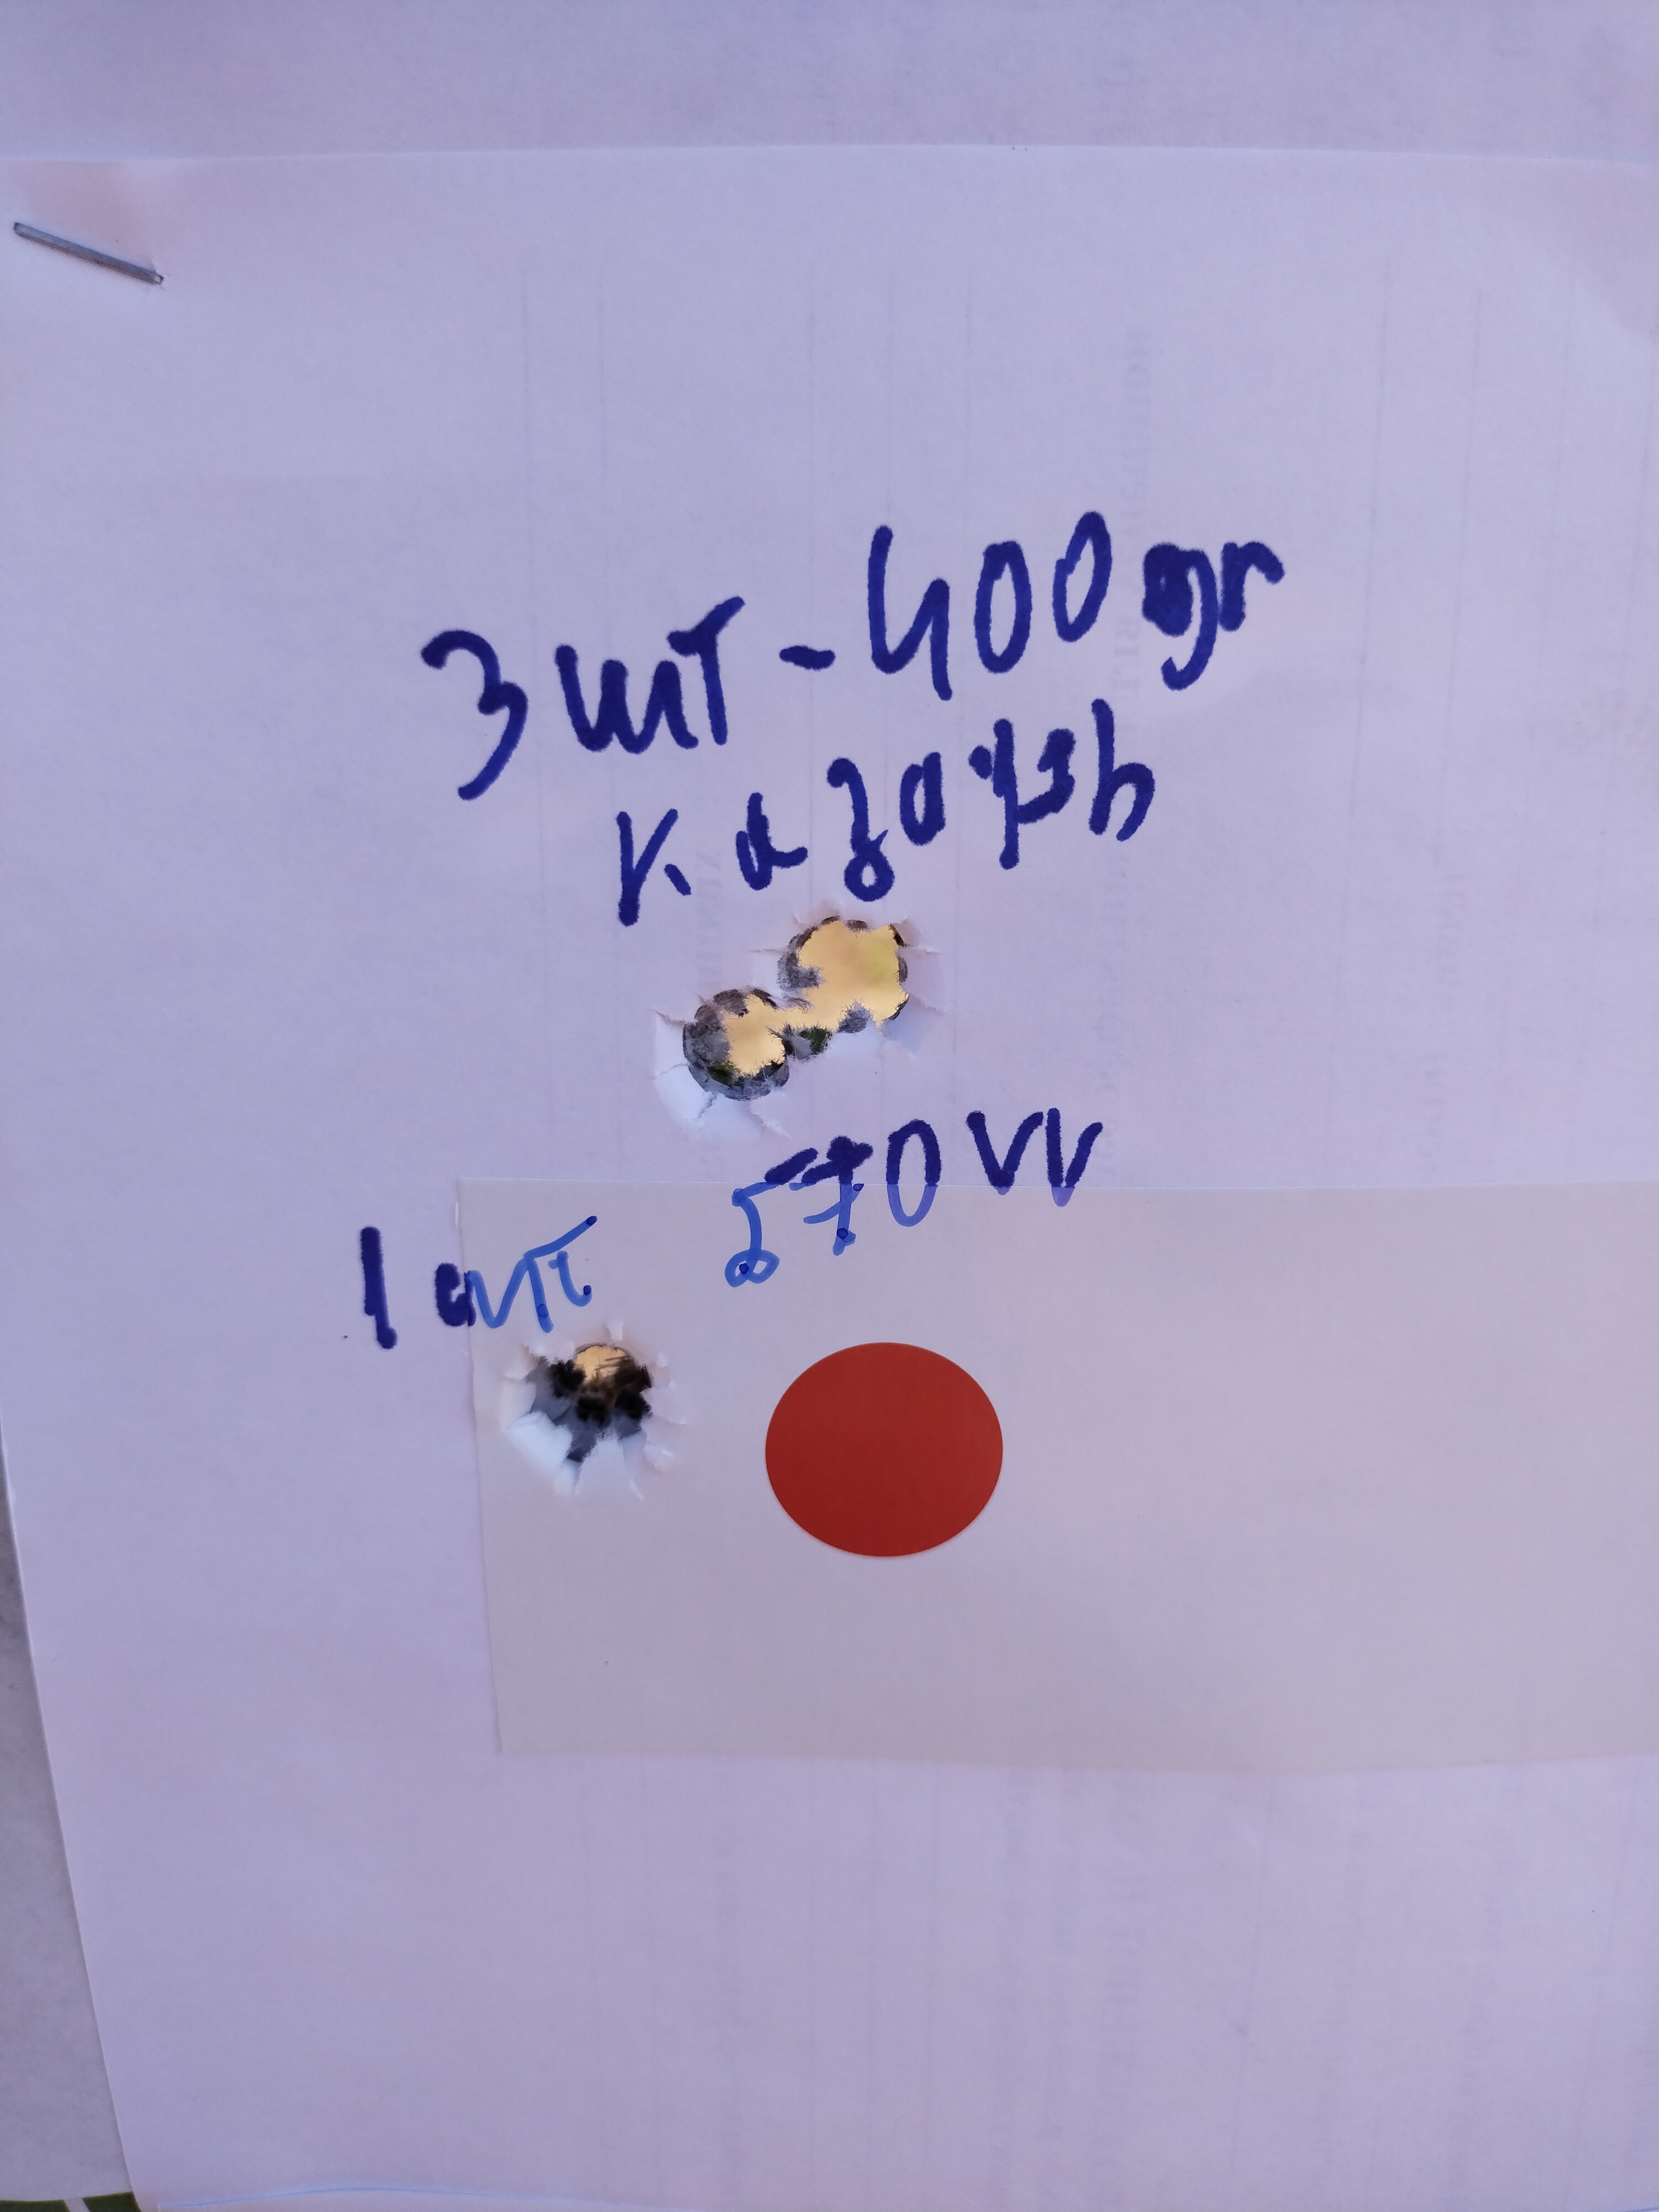 3 шт - 400 gr
Казань
570 VV
1 шт